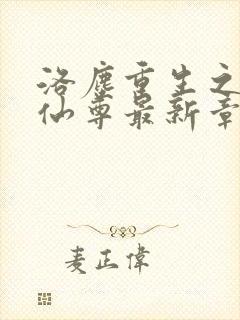 洛塵重生之
仙尊最新章
麦正偉